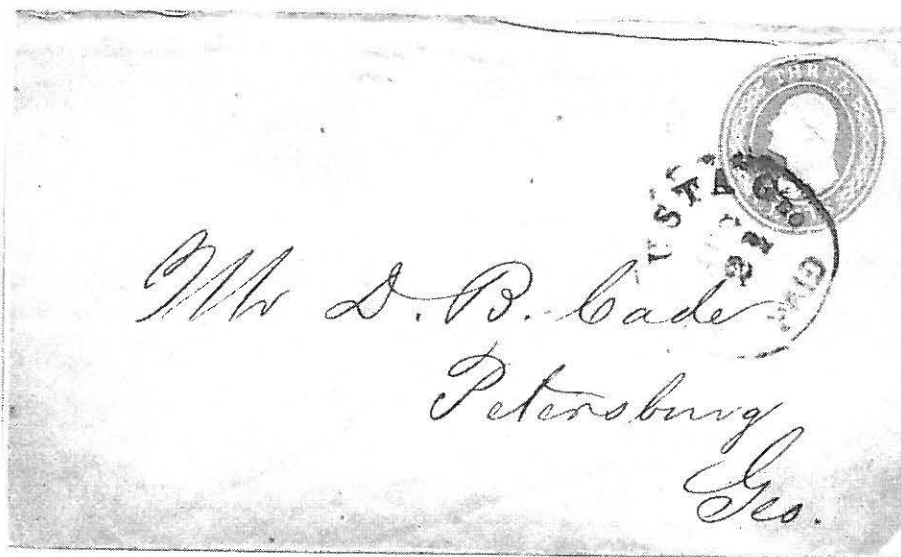 THREE
21
PAID
Mr D. B. Cade
Petersburg
Geo.